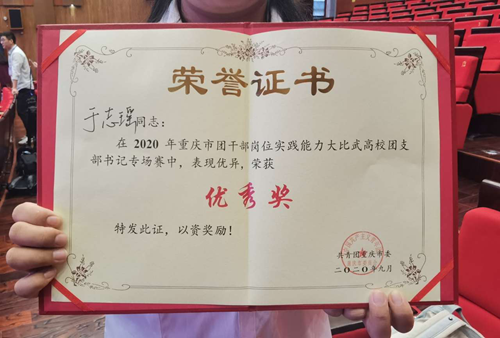 荣誉证书
于志瑶同志：
在 2020 年重庆市团干部岗位实践能力大比武高校团支
部书记专场赛中，表现优异，荣获
优秀奖
特发此证，以资奖励！
共青团重庆市委
二〇二〇年九月